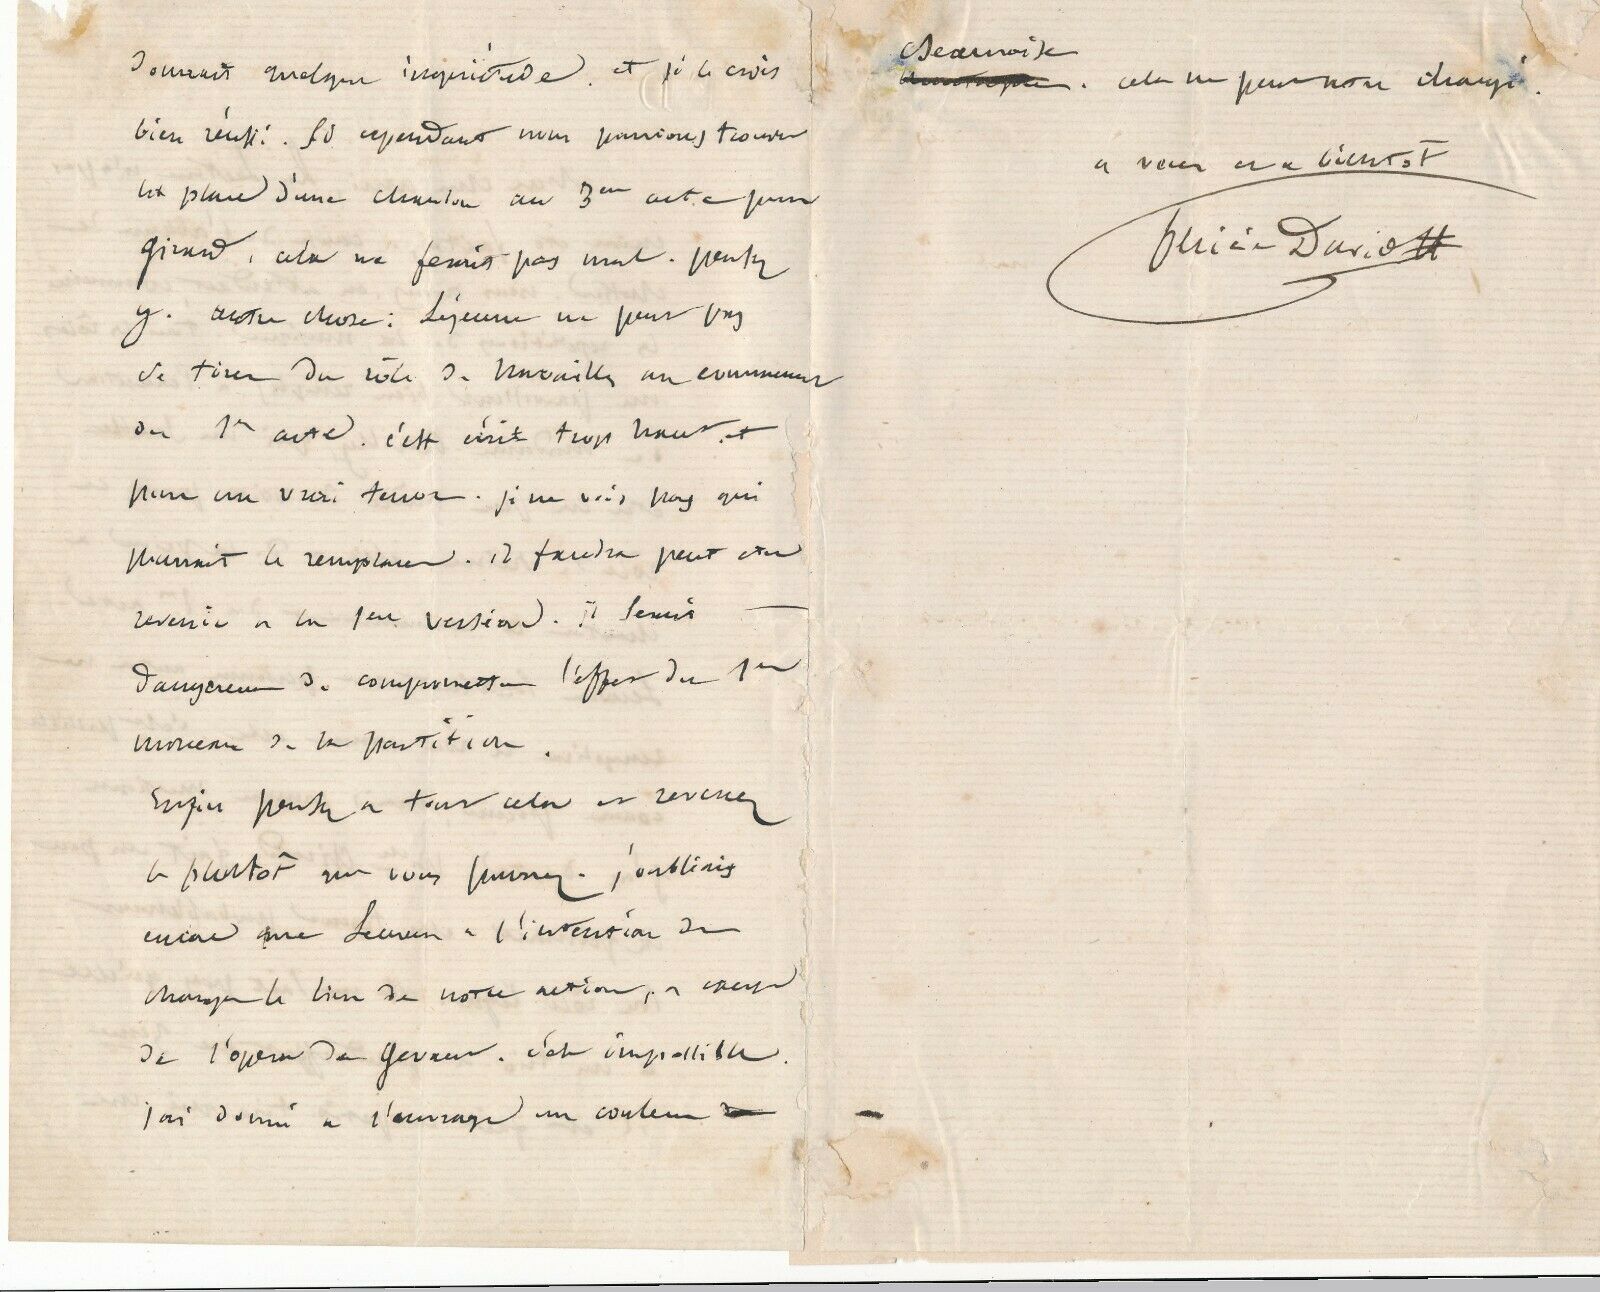 donnait quelque inquiétude. et je le crois
bien réussi. Si cependant nous pouvions trouver
la place d'une chanson au 3eme acte pour
Girard, cela ne ferait pas mal. pensez
y. autre chose: Lejeune ne peut pas
se tirer du role de au commencement
du 1er acte. c'est écrit trop haut et
pour un vrai tenor. je ne vois pas qui
pourrait le remplacer. il faudra peut etre
revenir a la 1ere version. il serait
dangereux de compromettre l'effet du 1er
morceau de la partition.
Enfin pensez a tout cela et revenez
le plustôt que vous pourrez. j'oubliais
encore que Leuven a l'intention de
changer le lieu de notre action, a cause
de l'opera de Gevaert. c'est impossible.
j'ai donné a l'ouvrage une couleur
. cela ne peut etre changé.
a vous et a bientot
Félicien David